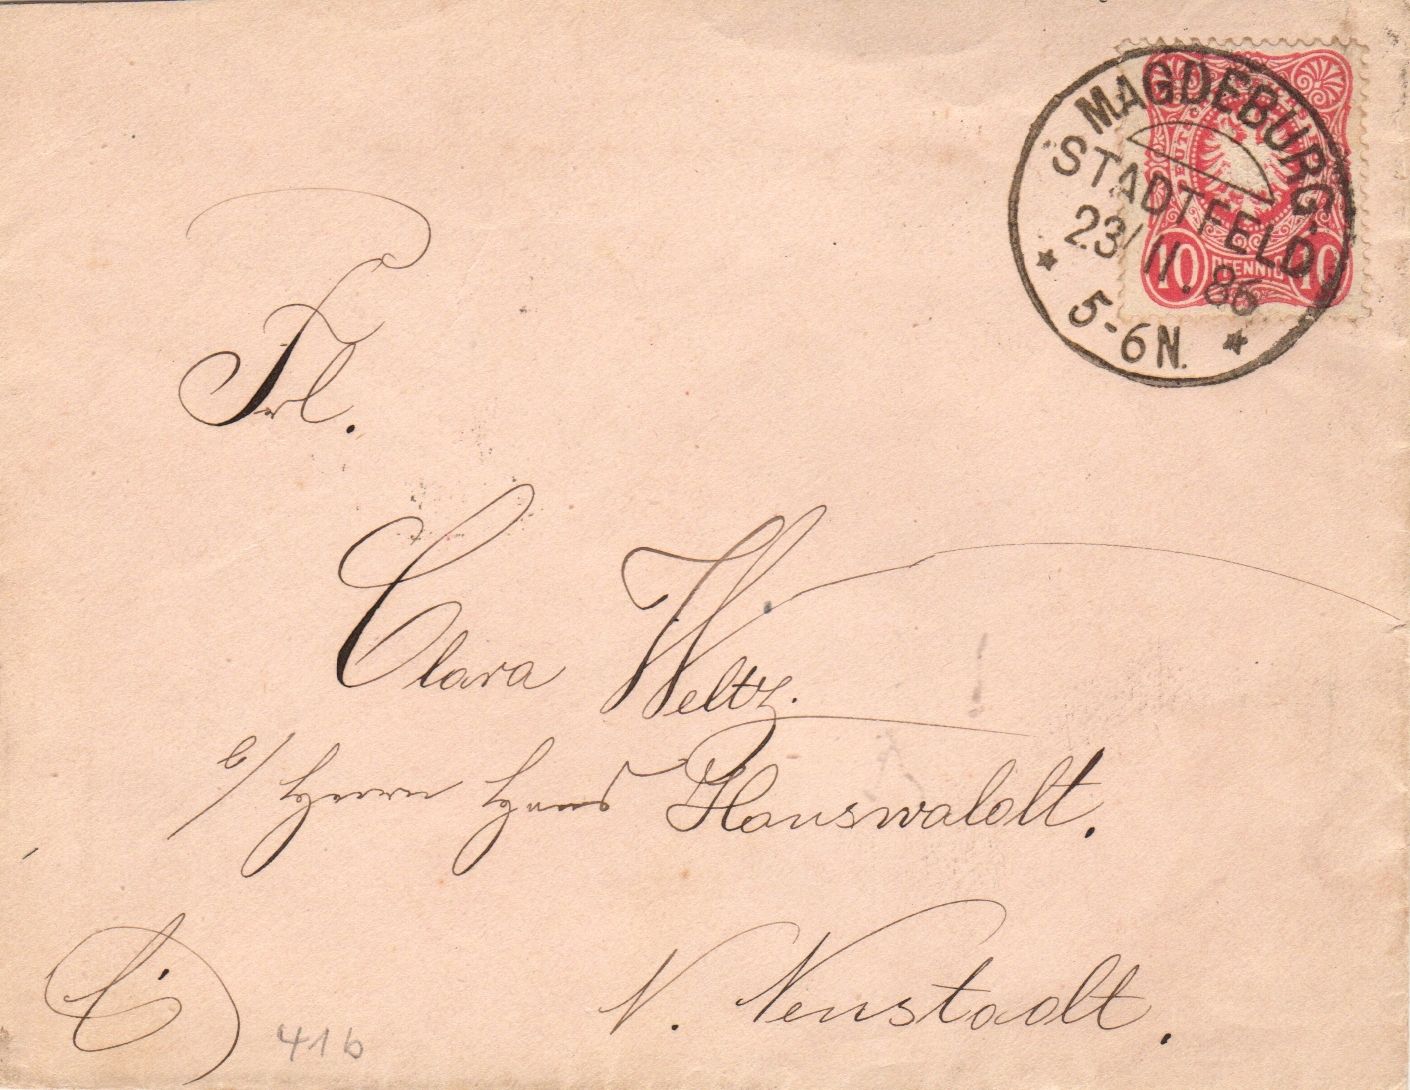 MAGDEBURG.
STADTFELD
23/11.86
5-6N.
10 PFENNIG 10
Frl.
Clara Weltz.
b/ Herrn Hans Hauswaldt.
N. Neustadt.
41b